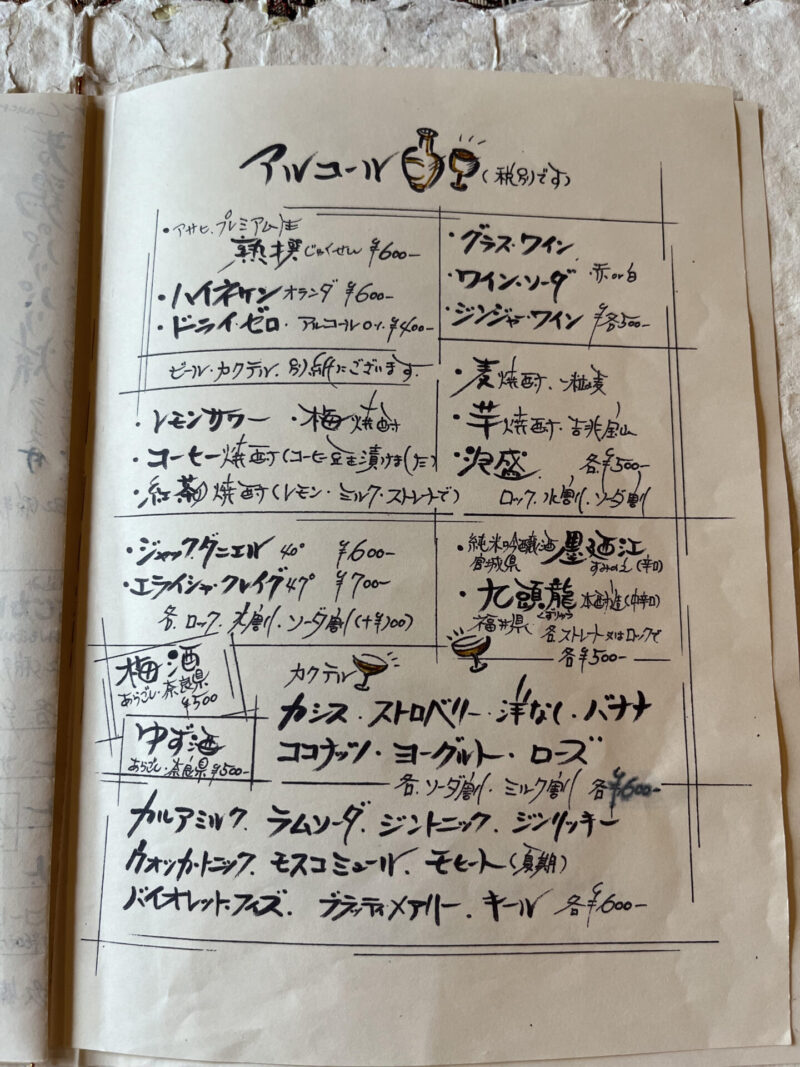 アルコール (税別です)
・アサヒ・プレミアム生
熟撰 じゅくせん ¥600-
・ハイネケン オランダ ¥600-
・ドライ・ゼロ・アルコール0% ¥400-
ビール・カクテル、別紙にございます。
・グラス・ワイン
・ワイン・ソーダ ・赤or白
・ジンジャー・ワイン ¥各500-
・レモンサワー ・梅焼酎
・コーヒー焼酎(コーヒー豆を漬けました)
・紅茶焼酎(レモン・ミルク・ストレートで)
・麦焼酎・一粒の麦
・芋焼酎・吉兆宝山
・泡盛 各¥500-
ロック、水割、ソーダ割
・ジャック・ダニエル 40° ¥600-
・エライジャ・クレイグ 47° ¥700-
各、ロック、水割、ソーダ割(+¥100)
・純米吟醸酒 墨廼江
宮城県 すみのえ(辛口)
・九頭龍 本醸造(中辛口)
福井県 くずりゅう 各ストレート又はロックで
各¥500-
梅酒
あらごし・奈良県
¥500
ゆず酒
あらごし・奈良県 ¥500-
カクテル
カシス・ストロベリー・洋なし・バナナ
ココナッツ・ヨーグルト・ローズ
各、ソーダ割・ミルク割 各¥600-
カルアミルク、ラムソーダ、ジントニック、ジンリッキー
ウオッカ・トニック、モスコミュール、モヒート(夏期)
バイオレット・フィズ、ブラッティ・メアリー、キール 各¥600-